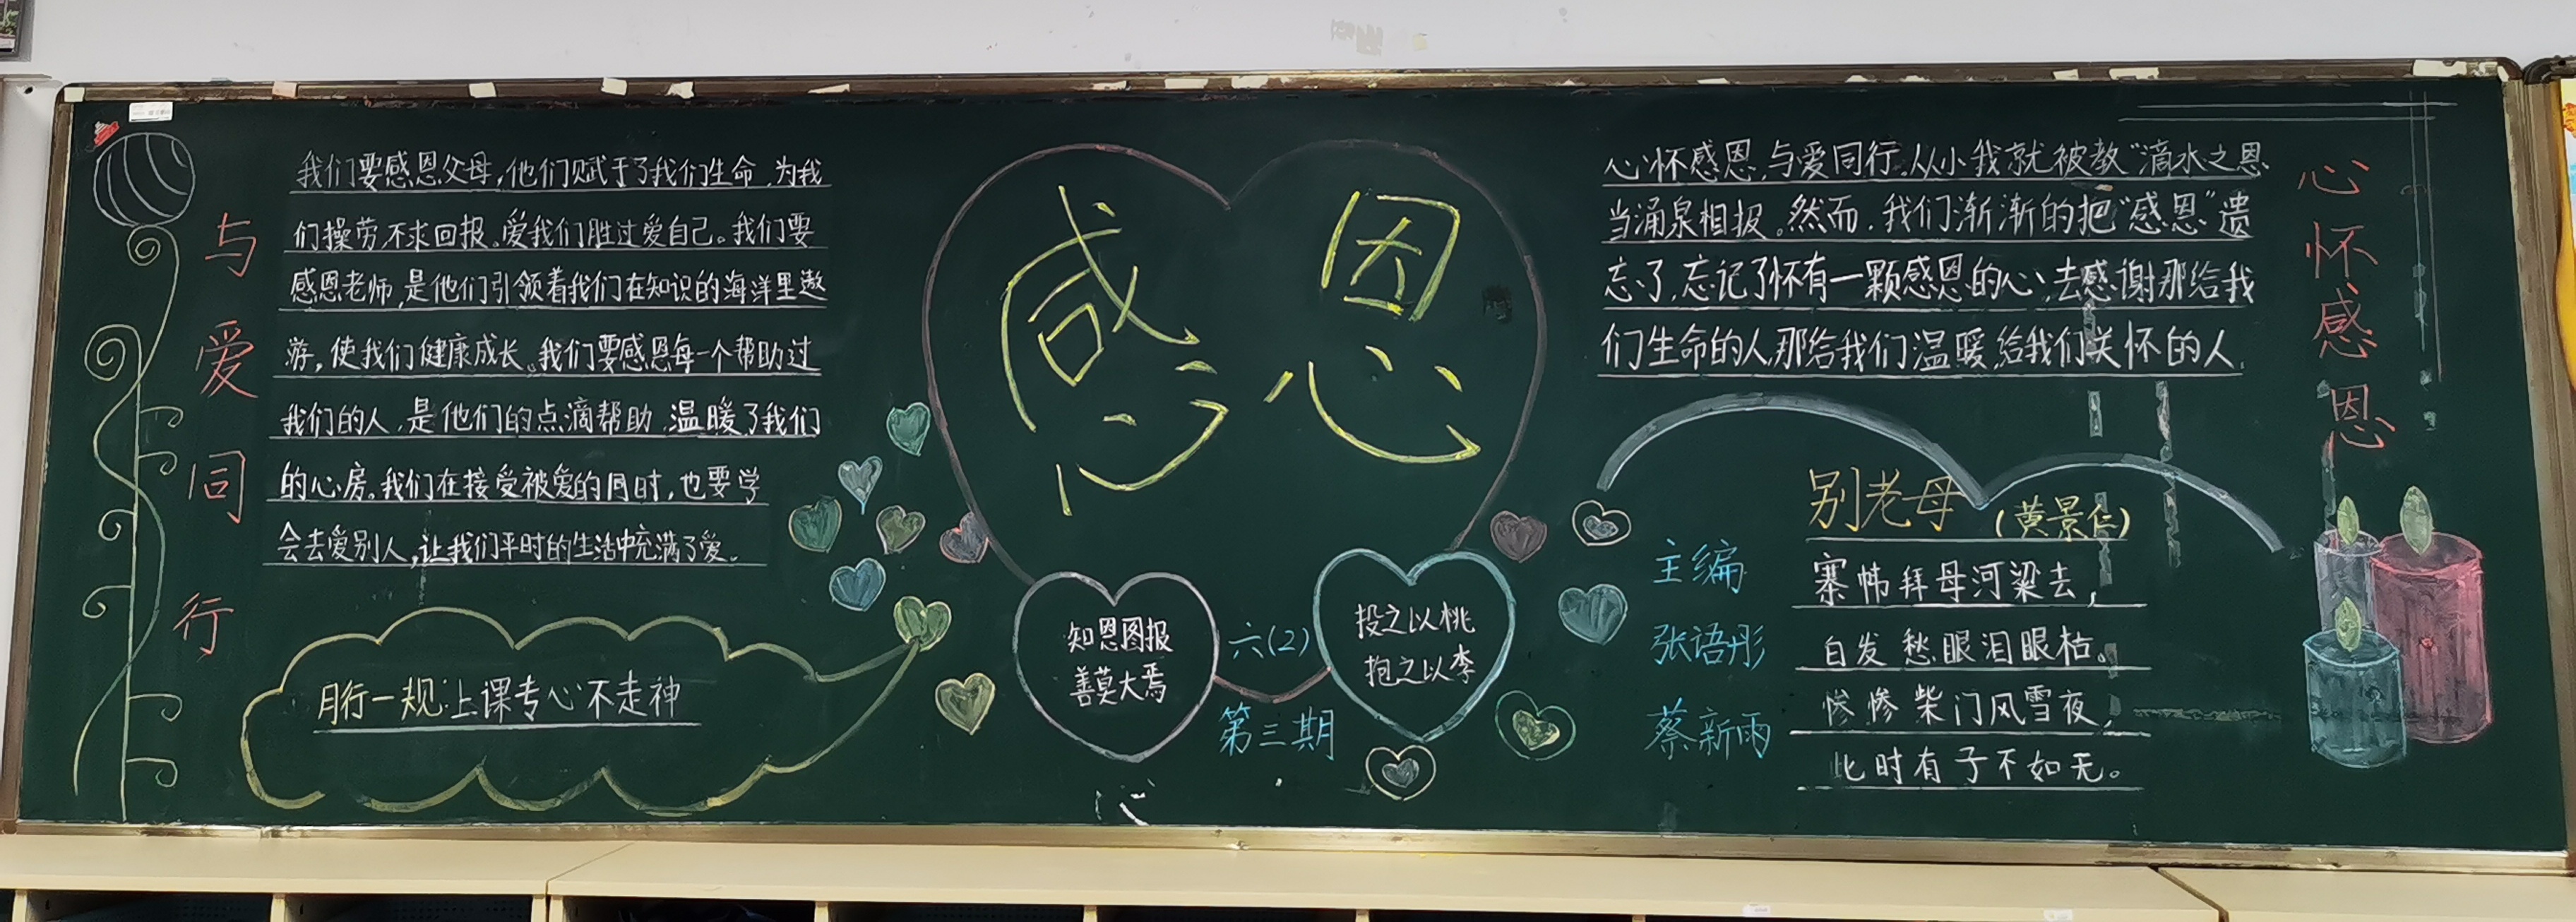 与爱同行
我们要感恩父母,他们赋于了我们生命,为我
们操劳不求回报。爱我们胜过爱自己。我们要
感恩老师,是他们引领着我们在知识的海洋里遨
游,使我们健康成长。我们要感恩每一个帮助过
我们的人,是他们的点滴帮助,温暖了我们
的心房。我们在接受被爱的同时,也要学
会去爱别人,让我们平时的生活中充满了爱。
月行一规:上课专心不走神
感恩
知恩图报
善莫大焉
六(2)
第三期
投之以桃
抱之以李
心怀感恩,与爱同行。从小我就被教“滴水之恩
当涌泉相报。然而,我们渐渐的把“感恩”遗
忘了,忘记了怀有一颗感恩的心,去感谢那给我
们生命的人,那给我们温暖,给我们关怀的人.
心怀感恩
主编
张语彤
蔡新雨
别老母
(黄景仁)
搴帏拜母河梁去,
白发愁眼泪眼枯。
惨惨柴门风雪夜,
此时有子不如无。